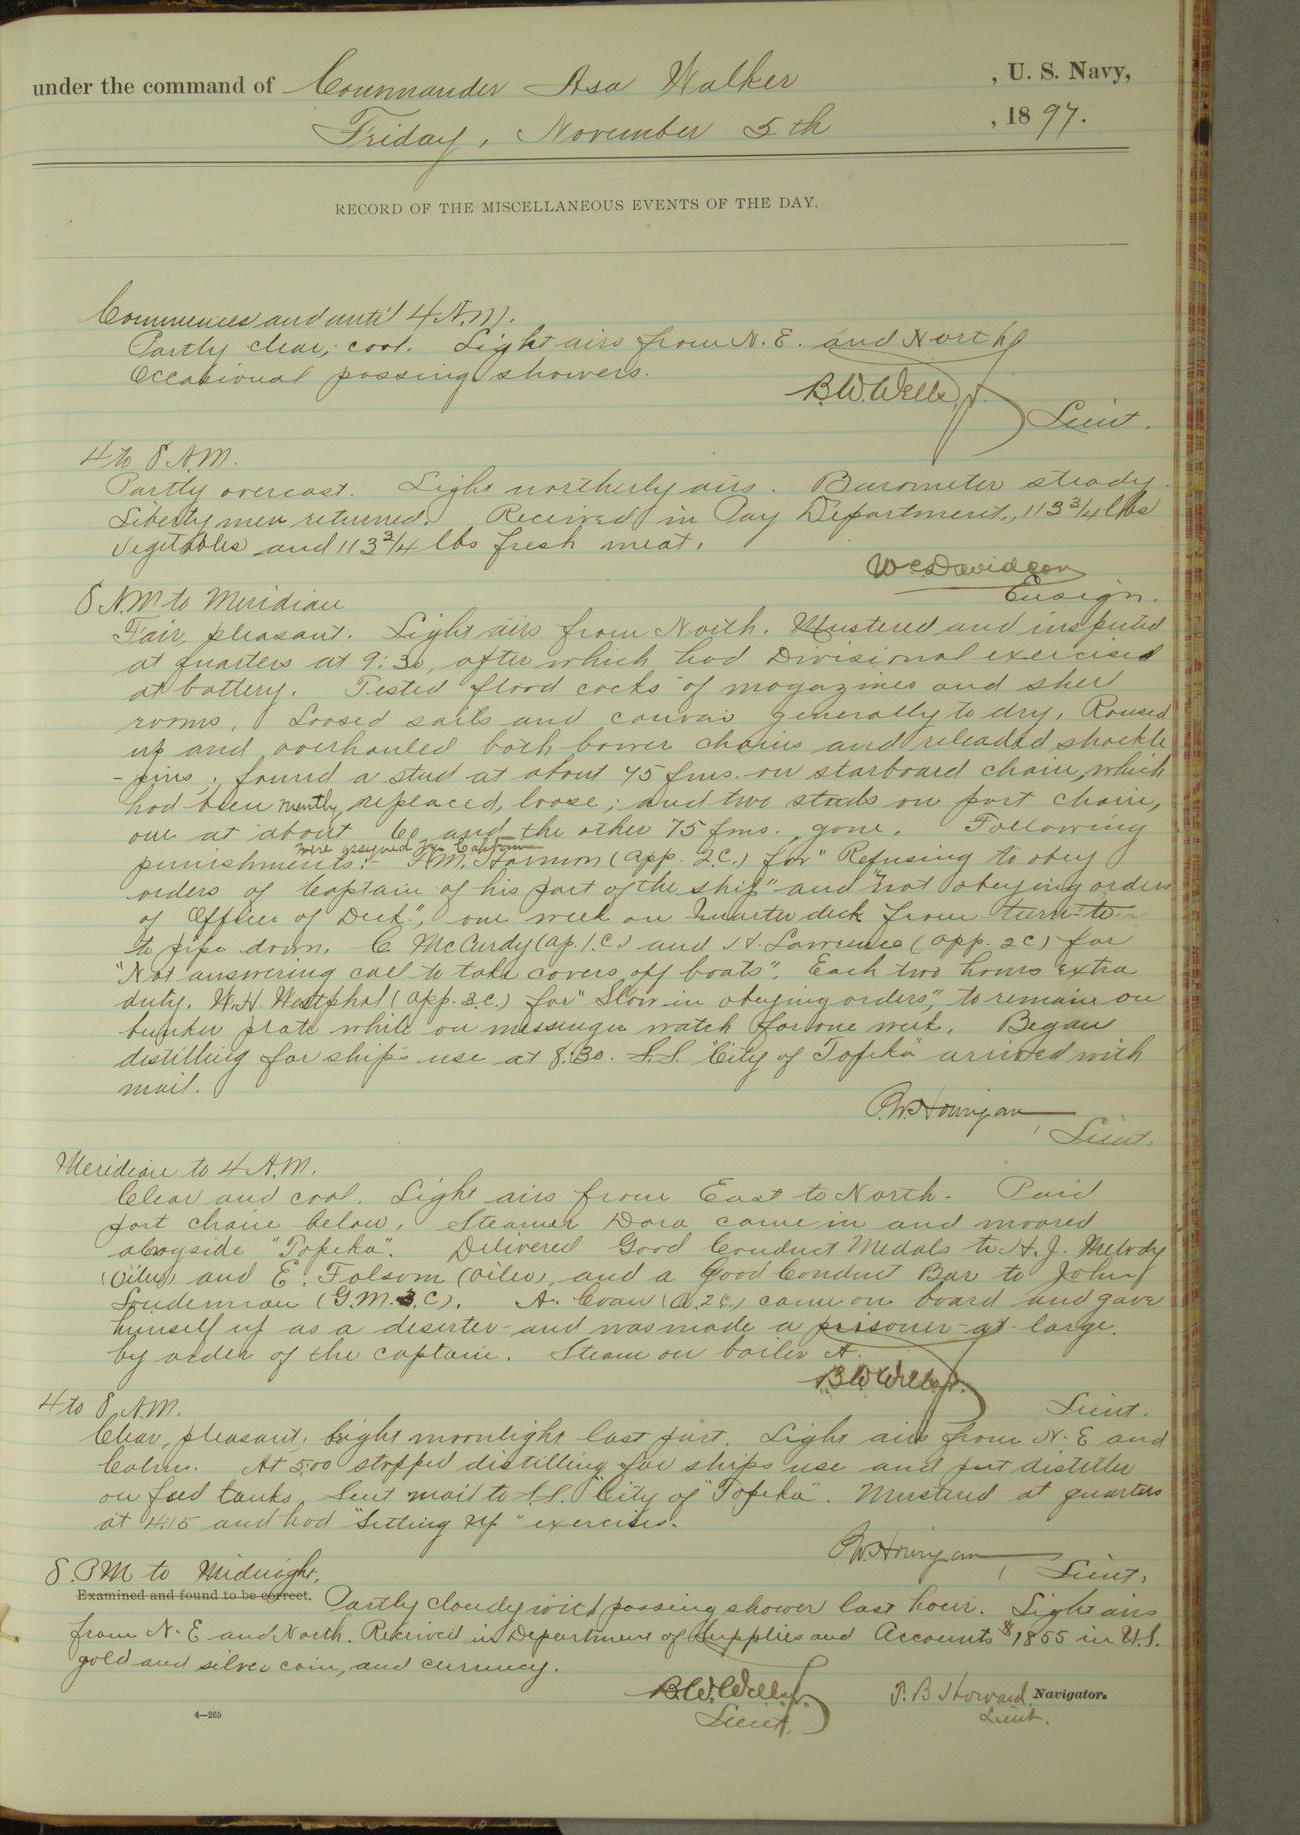 under the command of Commander Asa Walker , U. S. Navy,
Friday, November 5th , 1897.
RECORD OF THE MISCELLANEOUS EVENTS OF THE DAY.
Commences and until 4 A.M.
Partly clear; cool. Light airs from N.E. and North
Occasional passing showers.
B.W. Wells Jr.
Lieut.
4 to 8 A.M.
Partly overcast. Light northerly airs. Barometer steady.
Liberty men returned. Received in Pay Department, 113 3/4 lbs
vegetables and 113 3/4 lbs fresh meat.
W C Davidson
Ensign.
8 A.M to Meridian
Fair, pleasant. Light airs from North. Mustered and inspected
at quarters at 9:30, after which had Divisional exercises
at battery. Tested flood cocks of magazines and shell
rooms. Loosed sails and canvas generally to dry. Roused
up and overhauled both bower chains and releaded shackle
-pins; found a stud at about 75 fms. on starboard chain, which
had been recently replaced, loose; and two studs on port chain,
one at about 60 and the other 75 fms., gone. Following
were assigned by Captain
punishments:- H.M. (app. 2.C.) for "Refusing to obey
orders of Captain of his part of the ship" and "not obeying orders
of Officer of Deck", one week on quarter deck from turn-to
to pipe down. C McCurdy (ap. 1.C.) and H. Lawrence (app. 2C) for
"Not answering call to take covers off boats". Each two hours extra
duty. W.H. Westphal (app. 3.C.) for "Slow in obeying orders", to remain on
bunker plate while on messenger watch for one week. Began
distilling for ship's use at 8:30. S.S. "City of Topeka" arrived with
mail.
P.W. Hourigan,
Lieut.
Meridian to 4 A.M.
Clear and cool. Light airs from East to North. Paid
port chain below. Steamer Dora came in and moored
alongside "Topeka". Delivered Good Conduct Medals to H. J. Melody
(Oiler) and E. Folsom (Oiler), and a Good Conduct Bar to John
(G.M. 3.C). A. (A. 2C.) came on board and gave
himself up as a deserter and was made a prisoner-at-large.
by order of the captain. Steam on boiler A.
B.W. Wells Jr.
Lieut.
4 to 8 A.M.
Clear, pleasant, bright moonlight last part. Light airs from N.E and
Calm. At 5:00 stopped distilling for ships use and put distiller
on feed tanks. Sent mail to S.S. "City of Topeka". Mustered at quarters
at 4:15 and had "Setting Up" exercises.
P.W. Hourigan,
Lieut.
8. P.M to Midnight.
Examined and found to be correct. Partly cloudy with passing shower last hour. Light airs
from N.E and North. Received in Department of Supplies and Accounts $1855 in U.S.
gold and silver coin, and currency.
B.W. Wells Jr.
Lieut.
T. B Howard, Navigator.
Lieut.
4—265